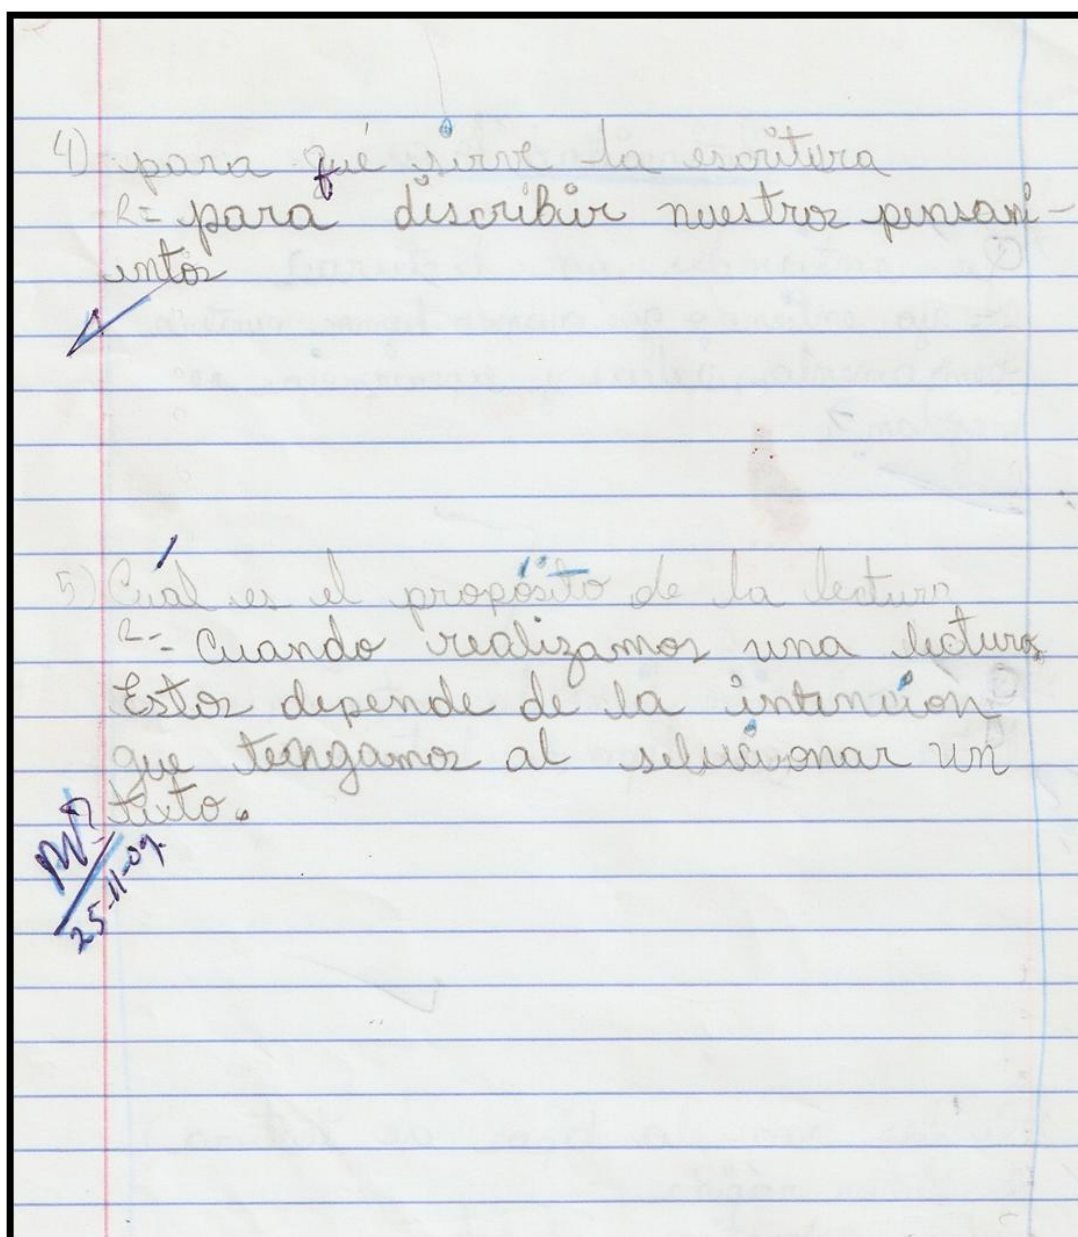 4) para qué sirve la escritura
R= para describir nuestros pensami-
entos
5) Cuál es el propósito de la lectura
R= Cuando realizamos una lectura,
Estos depende de la intención
que tengamos al seleccionar un
texto.
25-11-09.